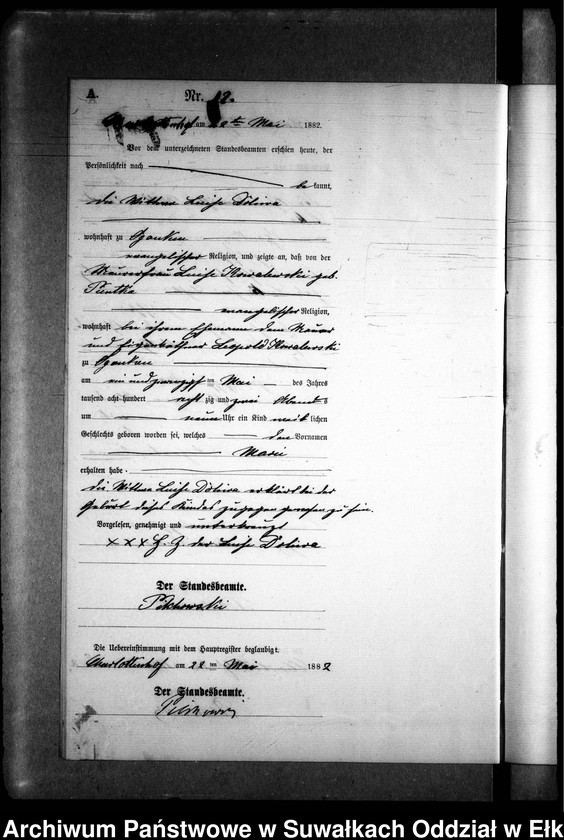 A. Nr. 12.
Charlottenhof am 22ten Mai 1882.
Vor dem unterzeichneten Standesbeamten erschien heute, der
Persönlichkeit nach
be kannt,
die Wittwe Luise Doliwa
wohnhaft zu
evangelischer Religion, und zeigte an, daß von der
Maurerfrau Luise Kowalewski geb.
Pientka
evangelischer Religion,
wohnhaft bei ihrem Ehemann dem Maurer
und Eigenkäthner Leopold Kowalewski
zu
am ein und zwanzigsten Mai des Jahres
tausend acht hundert acht zig und zwei Abends
um neun Uhr ein Kind weib lichen
Geschlechts geboren worden sei, welches den Vornamen
Marie
erhalten habe.
die Wittwe Luise Doliwa erklärt bei der
Geburt dieses Kindes zugegen gewesen zu sein.
Vorgelesen, genehmigt und unterkreuzt
XXX H. Z. der Luise Doliwa
Der Standesbeamte.
Die Uebereinstimmung mit dem Hauptregister beglaubigt.
Charlottenhof am 22 ten Mai 1882
Der Standesbeamte.
Archiwum Państwowe w Suwałkach Oddział w Ełk